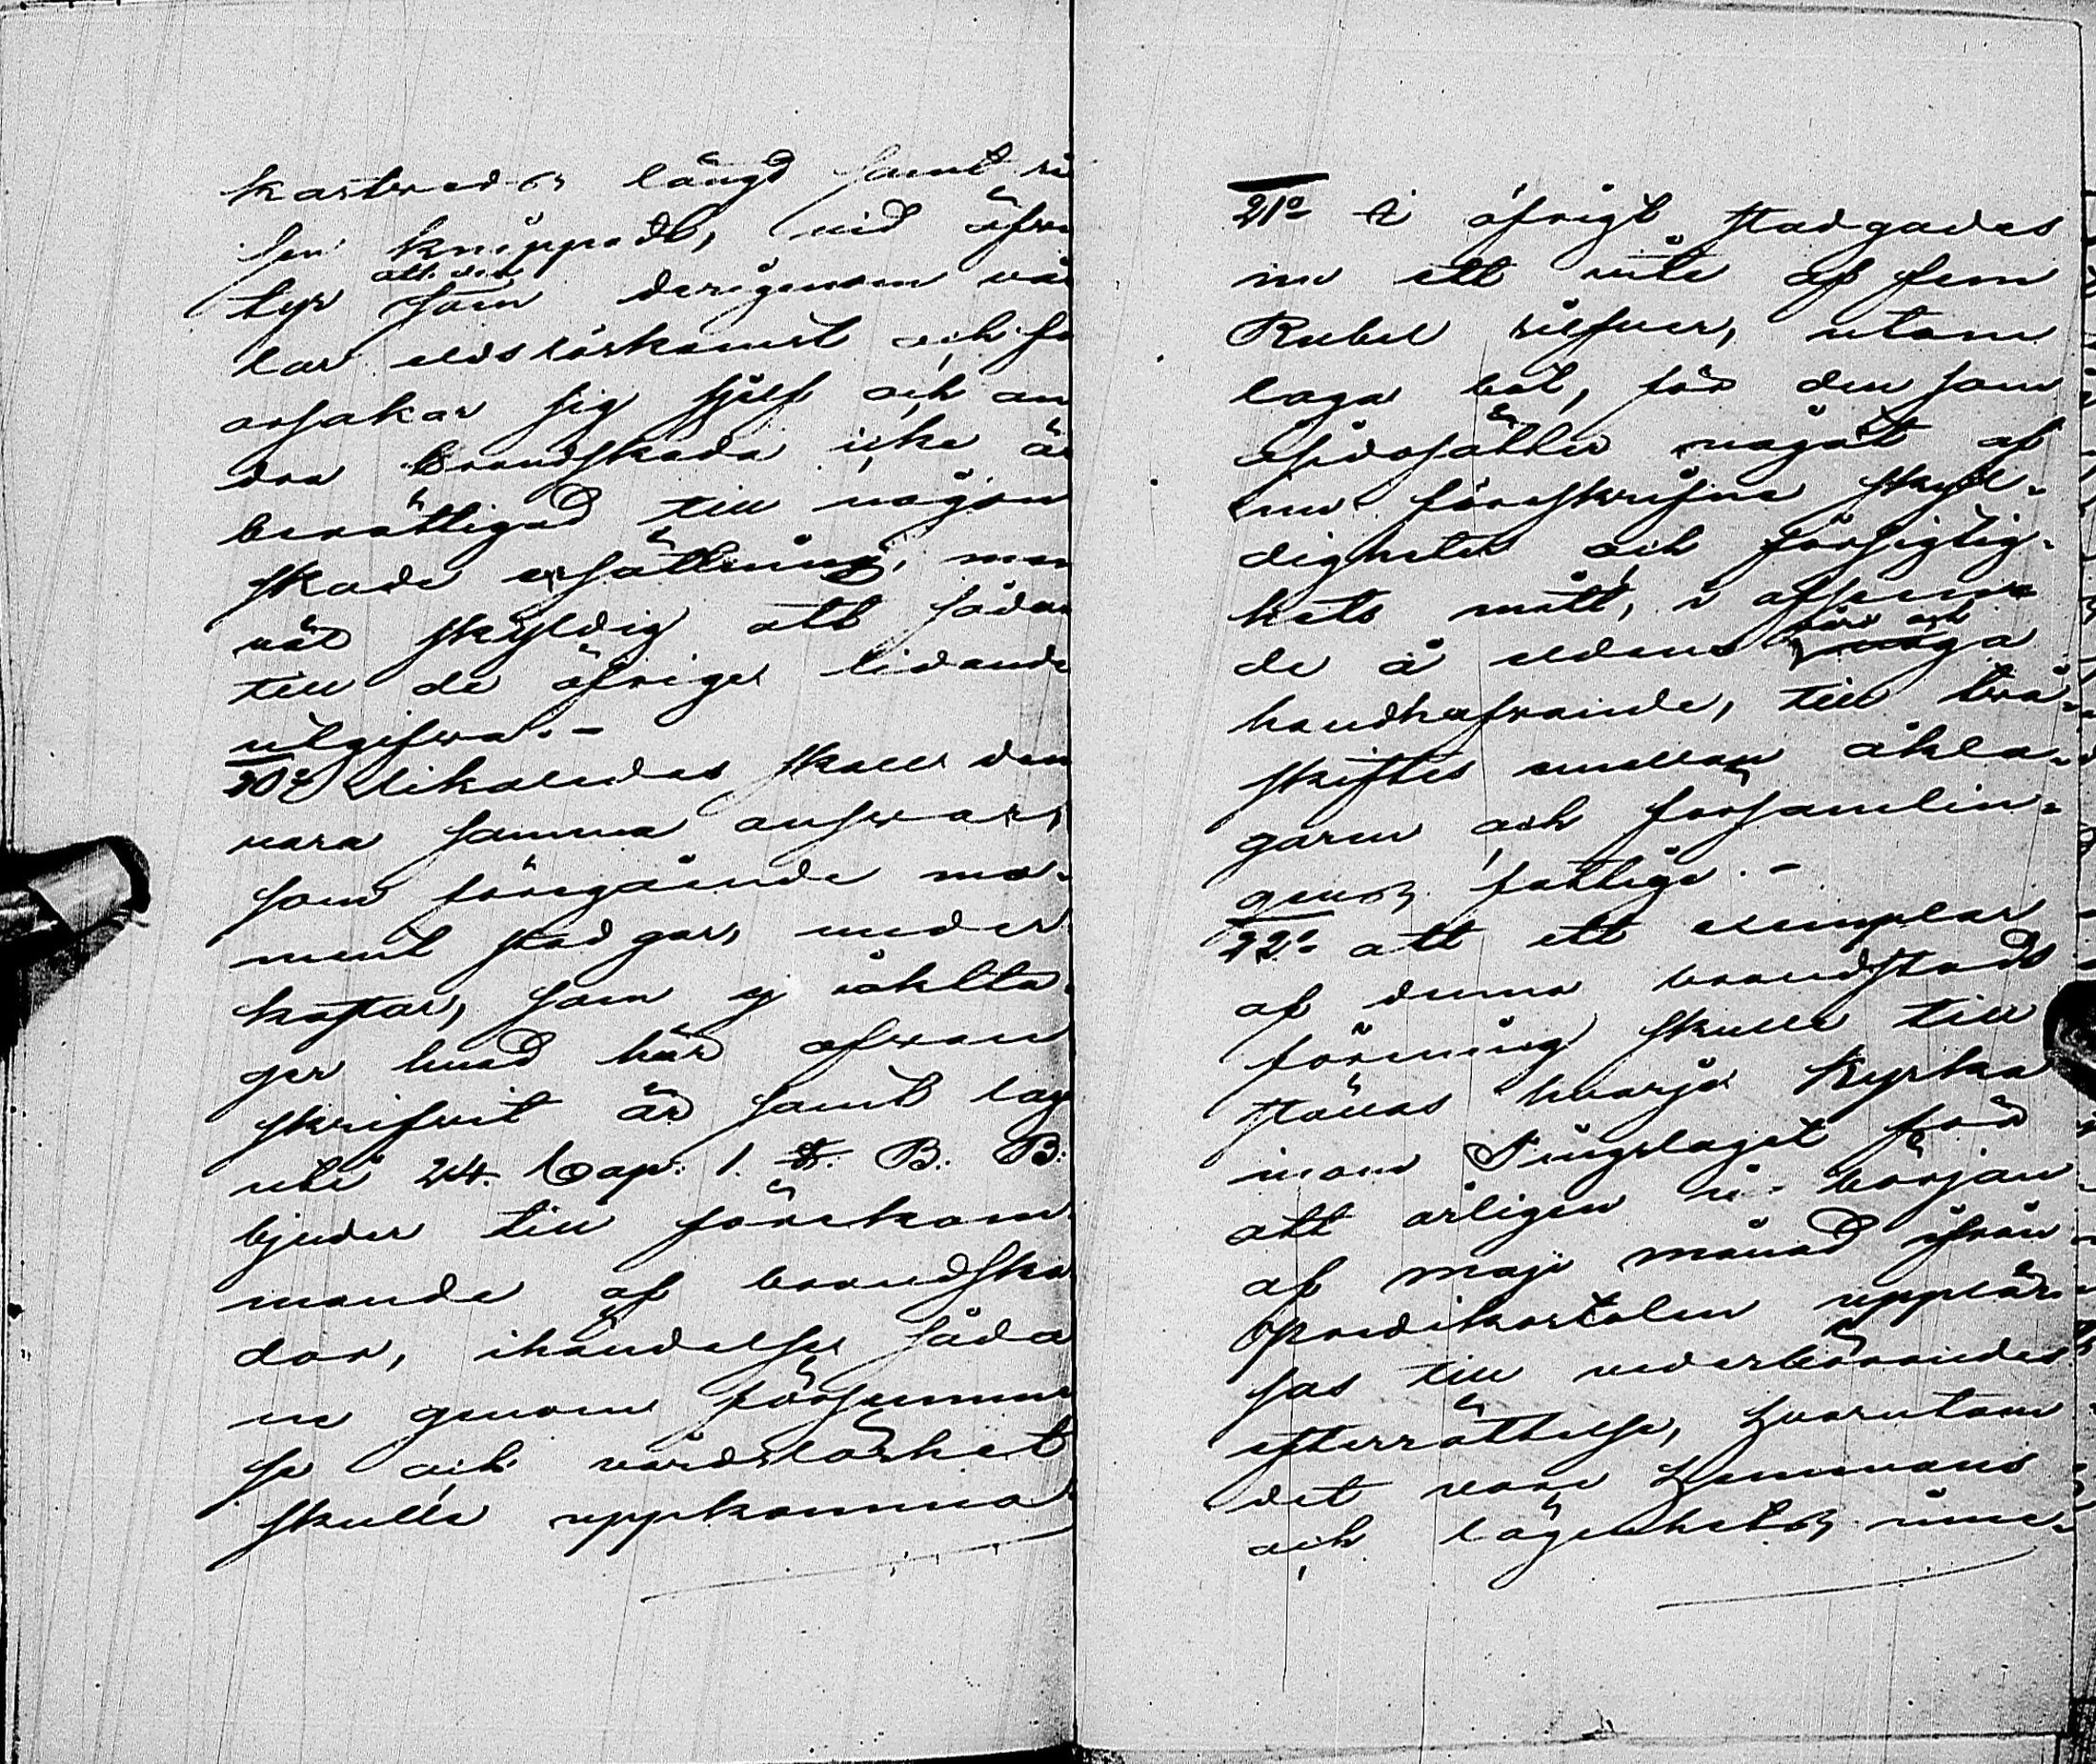 kastveds längd samt ri
sen knippadt, vid äfven
att den
tyr som derigenom vål
lar eldslöskomst och för
orsakar sig sjelf och an
dra brandskada icke är
berättigad till någon
skade ersättning, men
väl skyldig att sådan
till de öfrige lidande
utgifva.-
20º Likaledes skall den
vara samma answar,
som föregående mo-
ment stadgar, under
kastar, som ej iaktta-
ger hvad här ofvan
skrifvit är samt lag
uti 24. Cap. 1. §. B. B.
bjuder till förekom-
mande af brandska
dor, ihändelse såda
ne genom försummel
se och vårdslöshet
skulle uppkomma
21º I öfrigt stadgades
nu ett vite af fem
Rubel silfver, utom
laga bot, för den som
åsidosätter något af
nu föreskrifne skyl-
digheter och försigtig-
hets mått, i afseen-
de å eldens
vård och
handhafvande, till två-
skiftes emellan åkla-
garen och församlin-
gens fattige.-
22º att ett exemplar
af denna brandstods
förening skulle till
ställas hvarje Kyrka
inom Tingslaget för
att årligen i början
af maji månad ifrån
predikostolen upplä-
sas till vederbörandes
efterrättelse, hvarutom
det vore hemmans
och lägenhets inne-